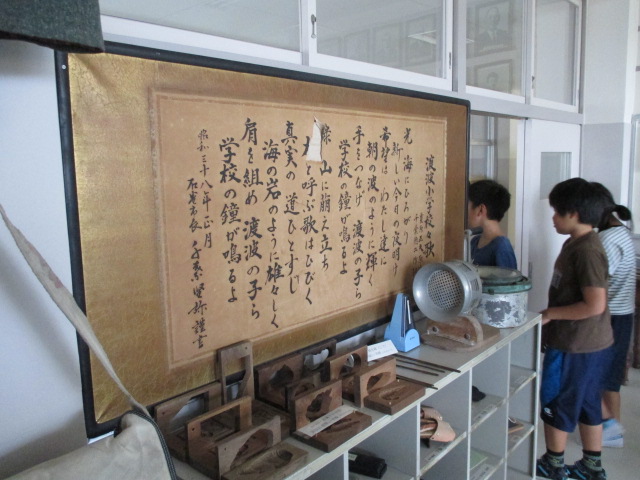 渡波小学校々歌
光 海にひろみ
新しい今日の夜明け
希望は わたし達に
朝の波のように輝く
手をつなげ 渡波の子ら
学校の鐘が鳴るよ
山に萠え立ち
と呼ぶ歌はひびく
真実の 道ひとすじ
海の岩のように雄々しく
肩を組め 渡波の子ら
学校の鐘が鳴るよ
昭和三十八年正月
石巻市長 千葉